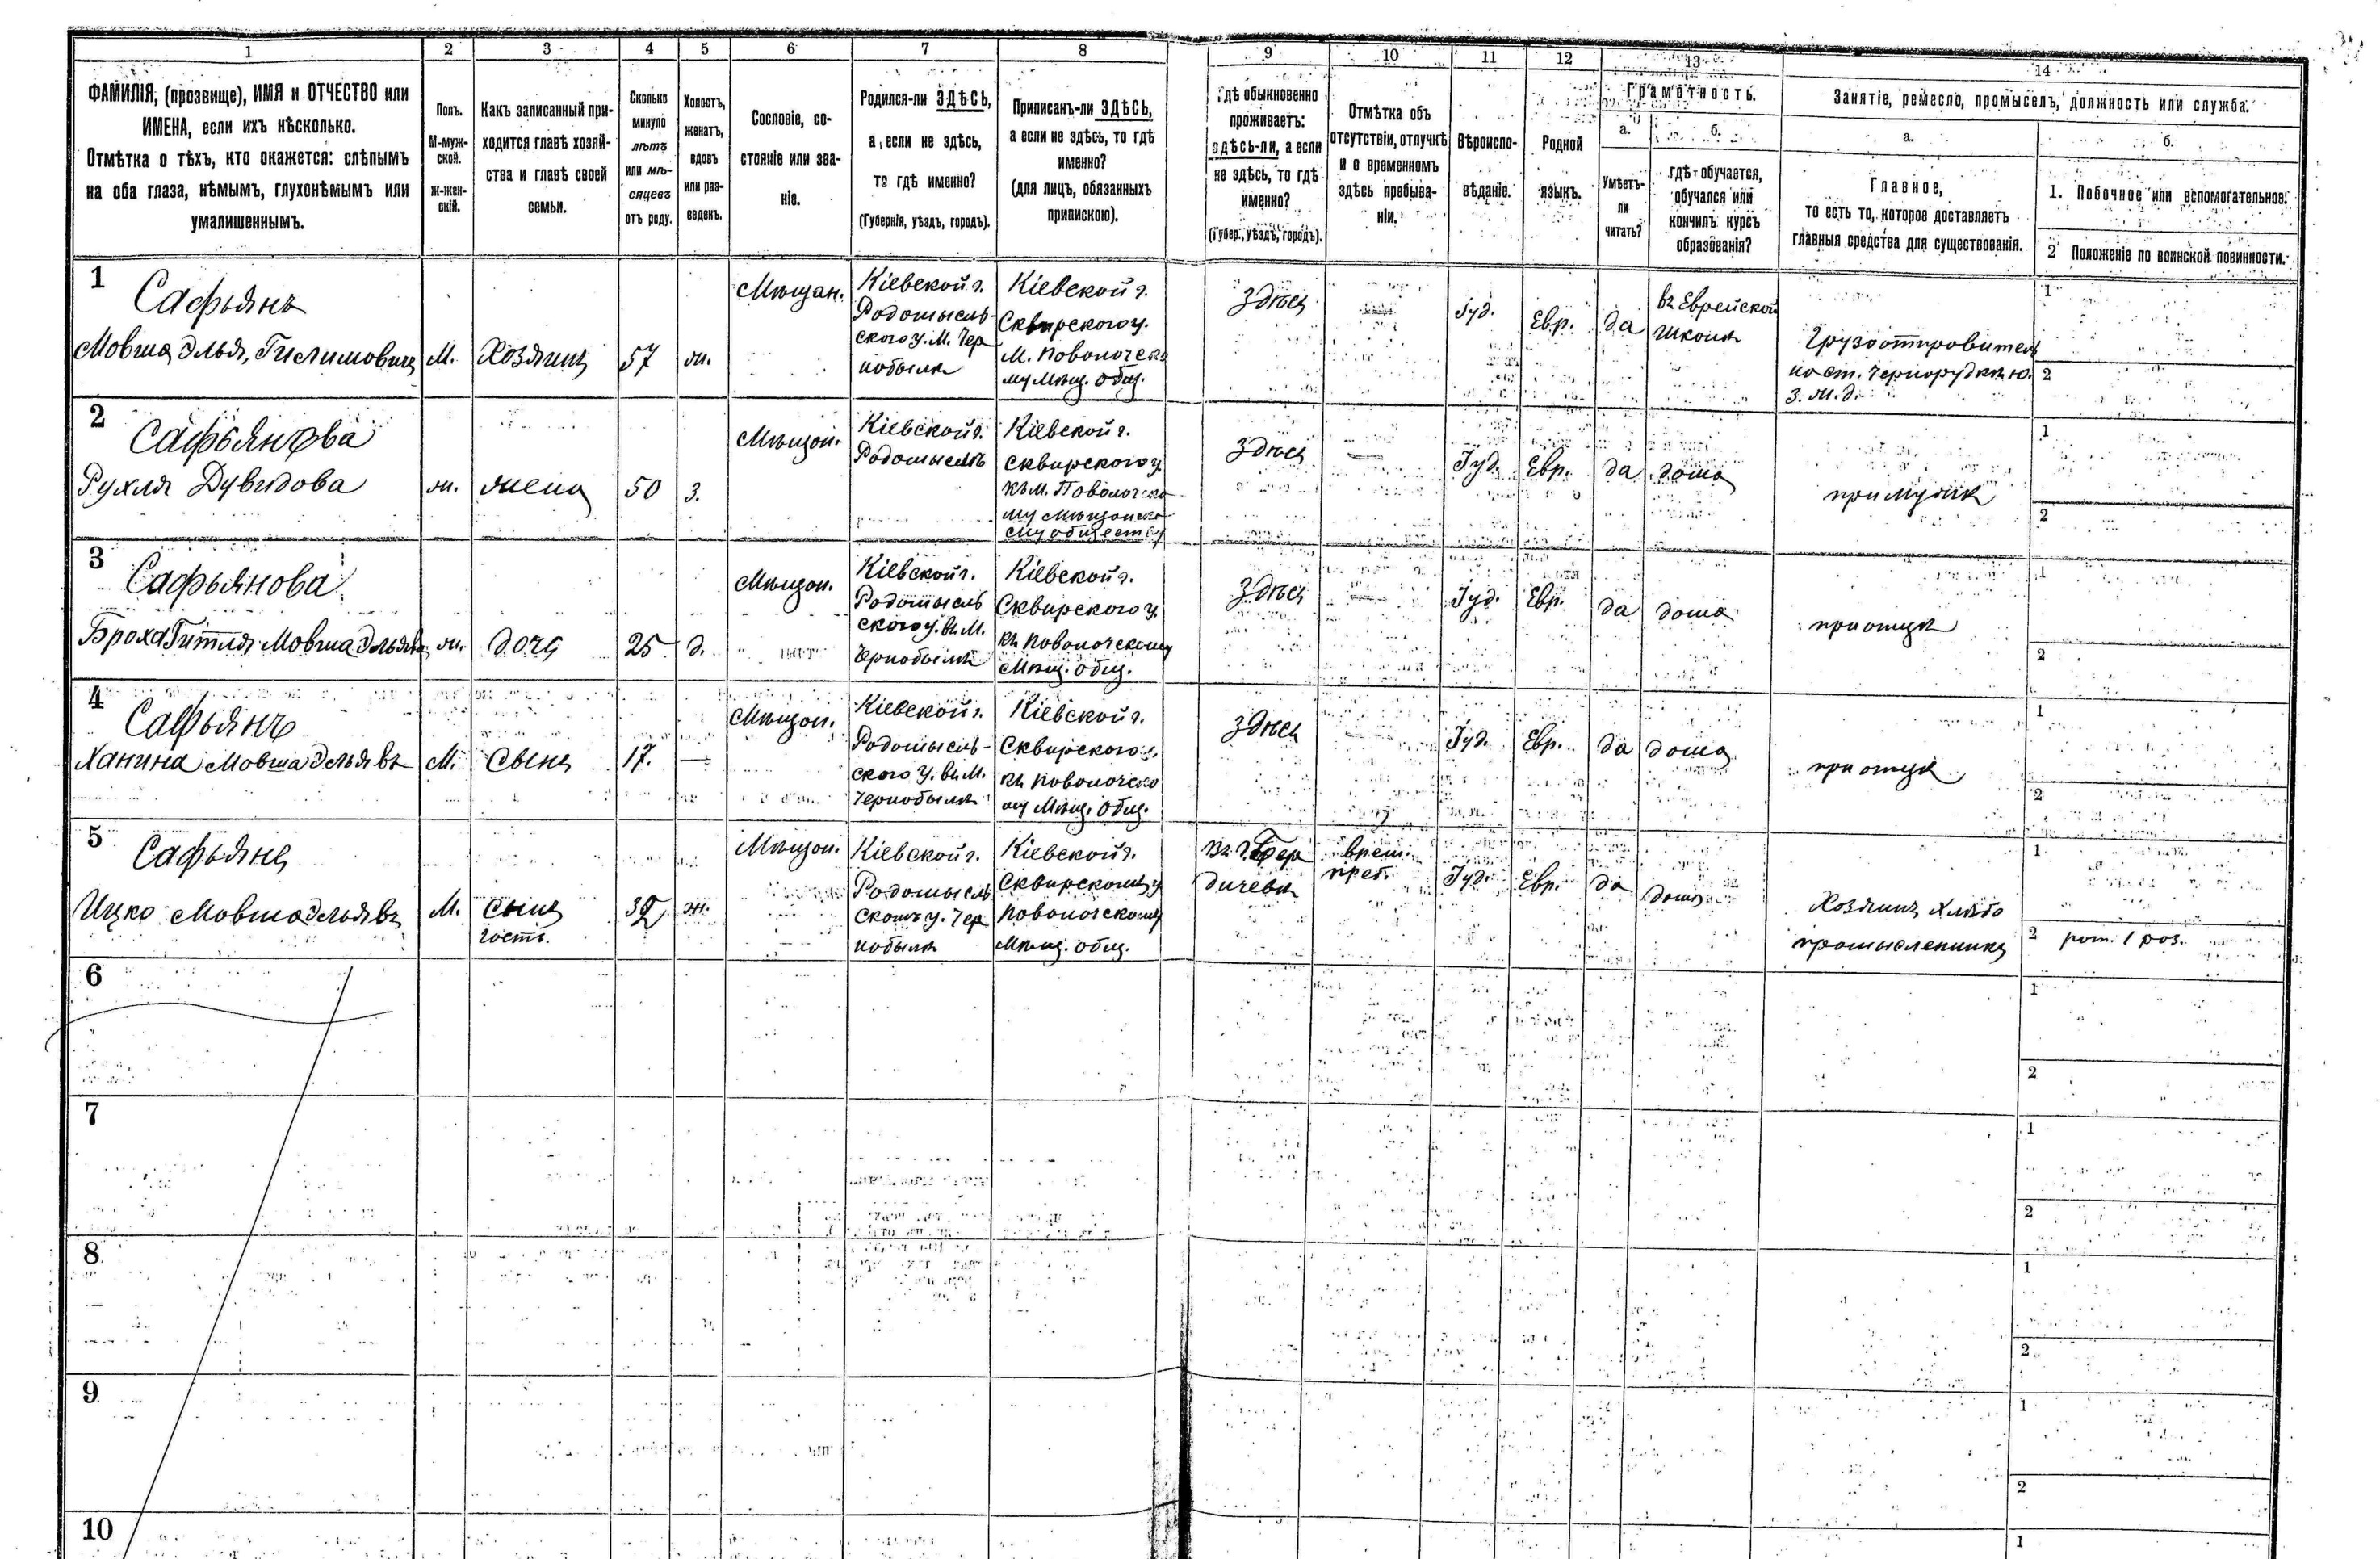 1 2 3 4 5 6 7 8 9 10 11 12 13 14
ФАМИЛІЯ, (прозвище), ИМЯ и ОТЧЕСТВО или
ИМЕНА, если ихъ нѣсколько.
Отмѣтка о тѣхъ, кто окажется: слѣпымъ
на оба глаза, нѣмымъ, глухонѣмымъ или
умалишеннымъ.
Полъ.
М-муж-
ской.
ж-жен-
скій.
Какъ записанный при-
ходится главѣ хозяй-
ства и главѣ своей
семьи.
Сколько
минуло
лѣтъ
или мѣ-
сяцевъ
отъ роду.
Холостъ,
женатъ,
вдовъ
или раз-
веденъ.
Сословіе, со-
стояніе или зва-
ніе.
Родился-ли ЗДѢСЬ,
а если не здѣсь,
то гдѣ именно?
(Губернія, уѣздъ, городъ).
Приписанъ-ли ЗДѢСЬ,
а если не здѣсь, то гдѣ
именно?
(для лицъ, обязанныхъ
припискою).
Гдѣ обыкновенно
проживаетъ:
здѣсь-ли, а если
не здѣсь, то гдѣ
именно?
(Губер., уѣздъ, городъ).
Отмѣтка объ
отсутствіи, отлучкѣ
и о временномъ
здѣсь пребыва-
ніи.
Вѣроиспо-
вѣданіе.
Родной
языкъ.
Грамотность.
а.
Умѣетъ-
ли
читать?
б.
гдѣ обучается,
обучался или
кончилъ курсъ
образованія?
Занятіе, ремесло, промыселъ, должность или служба.
а.
Главное,
то есть то, которое доставляетъ
главныя средства для существованія.
б.
1. Побочное или вспомогательное.
2 Положеніе по воинской повинности.
1
Сафьянъ
Мовша Элья,
М.
Хозяинъ
57
ж.
Мѣщан.
Кіевской г.
Родомысль-
скогоу. М. Чер
нобылѣ
Кіевской г.
Сквирскогоу.
М. Поволочско
му Мѣщ. общ.
Здѣсь
Іуд.
Евр.
да
въ Еврейской
школѣ
1
2
2
Сафьянова
Рухля Дувидова
ж.
жена
50
З.
Мѣщан.
Кіевской г.
Родомыслѣ
Кіевской г.
Сквирскогоу.
къ М. Поволочско
му мѣщанско
му обществу
Здѣсь
Іуд.
Евр.
да
дома
при мужѣ
1
2
3
Сафьянова
Броха Гитля Мовша Эльява
ж.
дочь
25
д.
Мѣщан.
Кіевской г.
Родомысль
скогоу. въ М.
Чернобылѣ
Кіевской г.
Сквирскогоу.
къ Поволочскому
Мѣщ. общ.
Здѣсь
Іуд.
Евр.
да
дома
при отцѣ
1
2
4
Сафьянъ
Ханина Мовша Эльявъ
М.
Сынъ
17.
—
Мѣщан.
Кіевской г.
Родомысль-
скогоу. въ М.
Чернобылѣ
Кіевской г.
Сквирскогоу.
къ Поволочско
му Мѣщ. общ.
Здѣсь
Іуд.
Евр.
да
дома
при отцѣ
1
2
5
Сафьянъ
Ицко Мовша Эльявъ
М.
Сынъ
гость.
32
ж.
Мѣщан.
Кіевской г.
Родомысль
скому. Чер
нобылѣ
Кіевской г.
Сквирскому у
Поволочскому
Мѣщ. общ.
Въ г. Бер
дичевѣ
врем.
преб.
Іуд.
Евр.
да
дома
Хозяинъ хлѣбо
промысленникъ
1
2 рат. 1 раз.
6
1
2
7
1
2
8
1
2
9
1
2
10
1